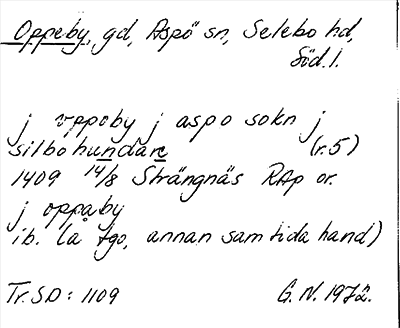 Oppeby, gd, Aspö sn, Selebo hd,
Söd. l.
j oppoby j aspo sokn j
silbohundare (r. 5)
1409 14/8 Strängnäs RAp or.
j oppaby
ib. (å tgo, annan samtida hand)
Tr. SD: 1109 G. N. 1972.